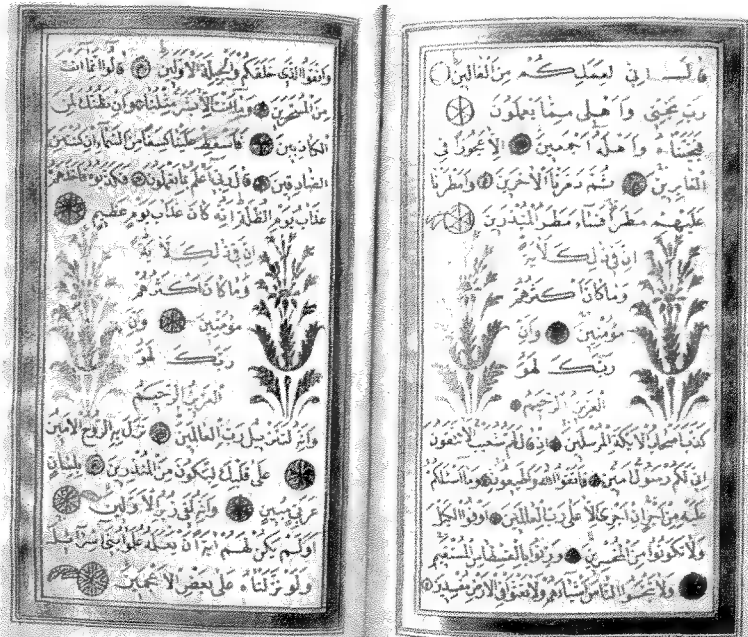 قال اني لعملكم من القالين
رب نجني واهلي مما يعملون
فنجيناه واهله اجمعين الا عجوزا في
الغابرين ثم دمرنا الاخرين وامطرنا
عليهم مطرا فساء مطر المنذرين
ان في ذلك لاية
وما كان اكثرهم
مؤمنين وان
ربك لهو
العزيز الرحيم
كذب اصحاب الايكة المرسلين اذ قال لهم شعيب الا تتقون
اني لكم رسول امين فاتقوا الله واطيعون وما اسئلكم
عليه من اجر ان اجري الا على رب العالمين اوفوا الكيل
ولا تكونوا من المخسرين وزنوا بالقسطاس المستقيم
ولا تبخسوا الناس اشياءهم ولا تعثوا في الارض مفسدين
واتقوا الذي خلقكم والجبلة الاولين قالوا انما انت
من المسحرين وما انت الا بشر مثلنا وان نظنك لمن
الكاذبين فاسقط علينا كسفا من السماء ان كنت من
الصادقين قال ربي اعلم بما تعملون فكذبوه فاخذهم
عذاب يوم الظلة انه كان عذاب يوم عظيم
ان في ذلك لاية
وما كان اكثرهم
مؤمنين وان
ربك لهو
العزيز الرحيم
وانه لتنزيل رب العالمين نزل به الروح الامين
على قلبك لتكون من المنذرين بلسان
عربي مبين وانه لفي زبر الاولين
اولم يكن لهم اية ان يعلمه علماء بني اسرائيل
ولو نزلناه على بعض الاعجمين